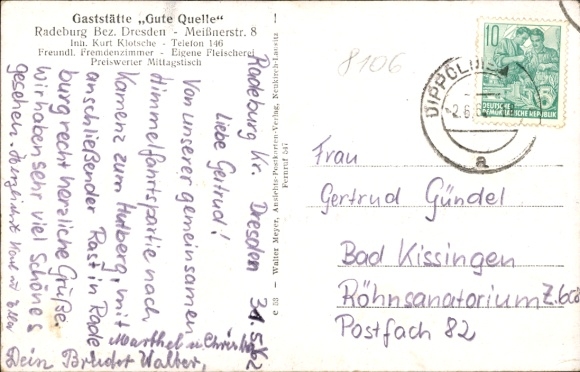 Gaststätte „Gute Quelle“
Radeburg Bez. Dresden - Meißnerstr. 8
Inh. Kurt Klotsche - Telefon 146
Freundl. Fremdenzimmer - Eigene Fleischerei
Preiswerter Mittagstisch
Radeburg Kr. Dresden 31.5.62
Liebe Gertrud!
Von unserer gemeinsamen
Himmelfahrtspartie nach
Kamenz zum Hutberg, mit
anschließender Rast in Rade
burg recht herzliche Grüße.
Wir haben sehr viel Schönes
gesehen. Herzlichst
Dein Bruder Walter,
Marthel u. Christa
c 53 - Walter Meyer, Ansichts-Postkarten-Verlag, Neukirch-Lausitz
Fernruf 547
8106
10
DEUTSCHE
DEMOKRATISCHE REPUBLIK
DIPPOLDIS
-2.6.6
a
Frau
Gertrud Gündel
Bad Kissingen
Röhnsanatorium Z. 608
Postfach 82